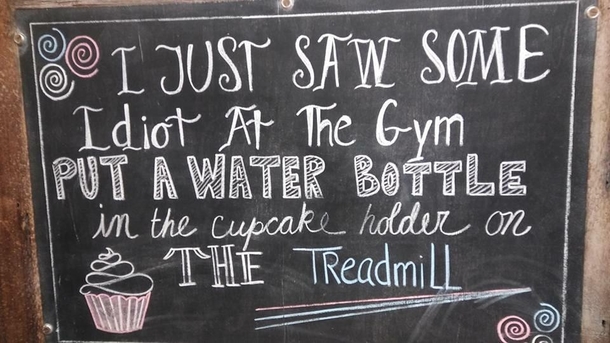 I JUST SAW SOME
Idiot At The Gym
PUT A WATER BOTTLE
in the cupcake holder on
THE Treadmill